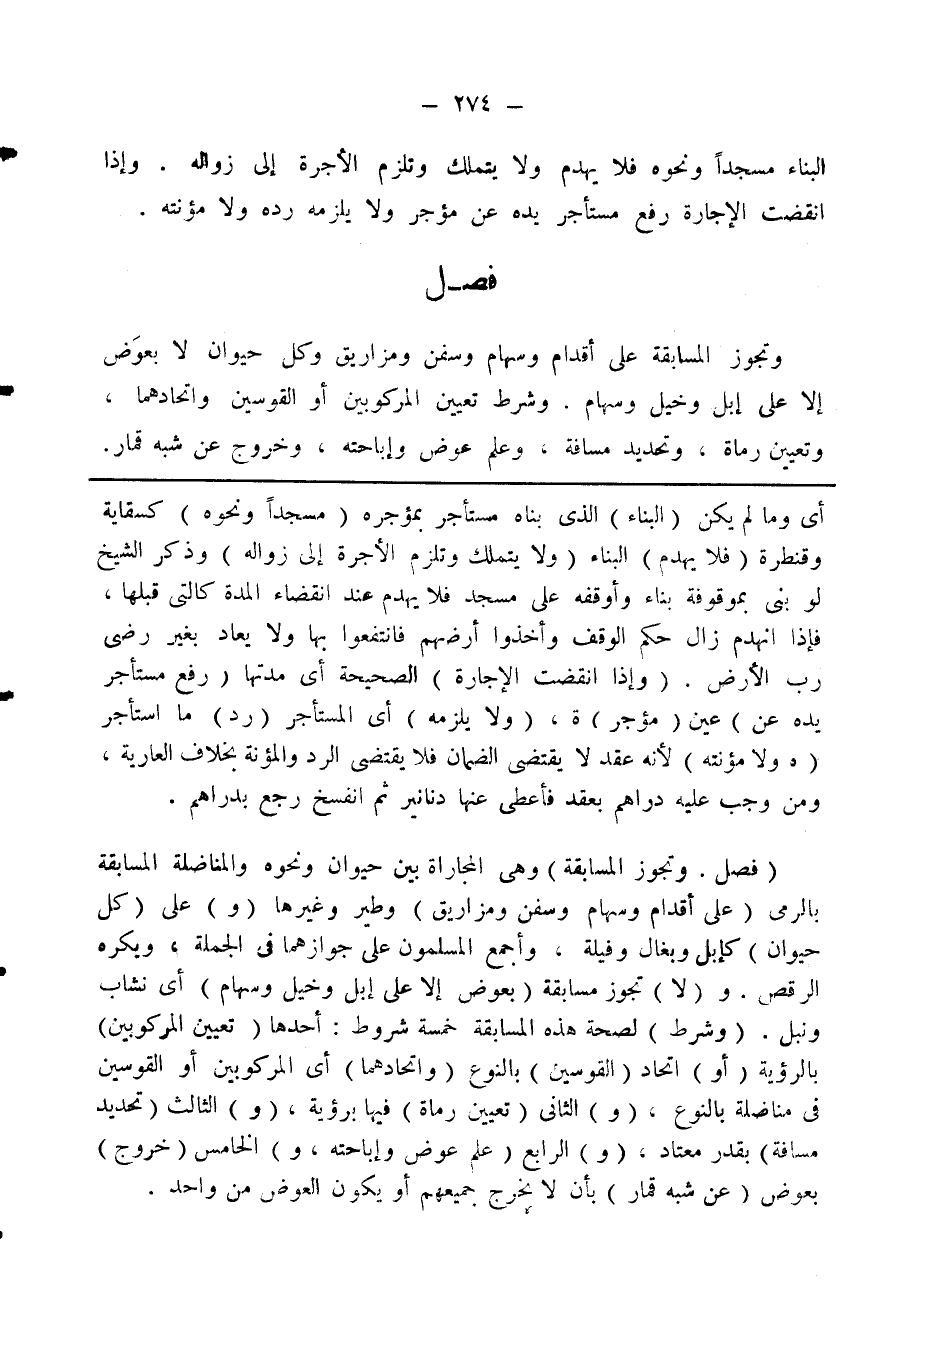 — ٢٧٤ —
البناء مسجداً ونحوه فلا يهدم ولا يتملك وتلزم الأجرة إلى زواله . وإذا
انقضت الإجارة رفع مستأجر يده عن مؤجر ولا يلزمه رده ولا مؤنته .
فصـل
وتجوز المسابقة على أقدام وسهام وسفن ومزاريق وكل حيوان لا بعوَض
إلا على إبل وخيل وسهام . وشرط تعيين المركوبين أو القوسين واتحادهما ،
وتعيين رماة ، وتحديد مسافة ، وعلم عوض وإباحته ، وخروج عن شبه قمار.
أى وما لم يكن ( البناء ) الذى بناه مستأجر بمؤجره ( مسجداً ونحوه ) كسقاية
وقنطرة ( فلا يهدم ) البناء ( ولا يتملك وتلزم الأجرة إلى زواله ) وذكر الشيخ
لو بنى بموقوفة بناء وأوقفه على مسجد فلا يهدم عند انقضاء المدة كالتى قبلها ،
فإذا انهدم زال حكم الوقف وأخذوا أرضهم فانتفعوا بها ولا يعاد بغير رضى
رب الأرض . ( وإذا انقضت الإجارة ) الصحيحة أى مدتها ( رفع مستأجر
يده عن ) عين ( مؤجر ) ة ، ( ولا يلزمه ) أى المستأجر ( رد ) ما استأجر
( ه ولا مؤنته ) لأنه عقد لا يقتضى الضمان فلا يقتضى الرد والمؤنة بخلاف العارية ،
ومن وجب عليه دراهم بعقد فأعطى عنها دنانير ثم انفسخ رجع بدراهم .
( فصل . وتجوز المسابقة ) وهى المجاراة بين حيوان ونحوه والمناضلة المسابقة
بالرمى ( على أقدام وسهام وسفن ومزاريق ) وطير وغيرها ( و ) على ( كل
حيوان ) كإبل وبغال وفيلة ، وأجمع المسلمون على جوازهما فى الجملة ، ويكره
الرقص . و ( لا ) تجوز مسابقة ( بعوض إلا على إبل وخيل وسهام ) أى نشاب
ونبل . ( وشرط ) لصحة هذه المسابقة خمسة شروط : أحدها ( تعيين المركوبين)
بالرؤية ( أو ) اتحاد ( القوسين ) بالنوع ( واتحادهما ) أى المركوبين أو القوسين
فى مناضلة بالنوع ، ( و ) الثانى ( تعيين رماة ) فيها برؤية ، ( و ) الثالث ( تحديد
مسافة) بقدر معتاد ، ( و ) الرابع ( علم عوض وإباحته ، و ) الخامس ( خروج )
بعوض ( عن شبه قمار ) بأن لا يخرج جميعهم أو يكون العوض من واحد .